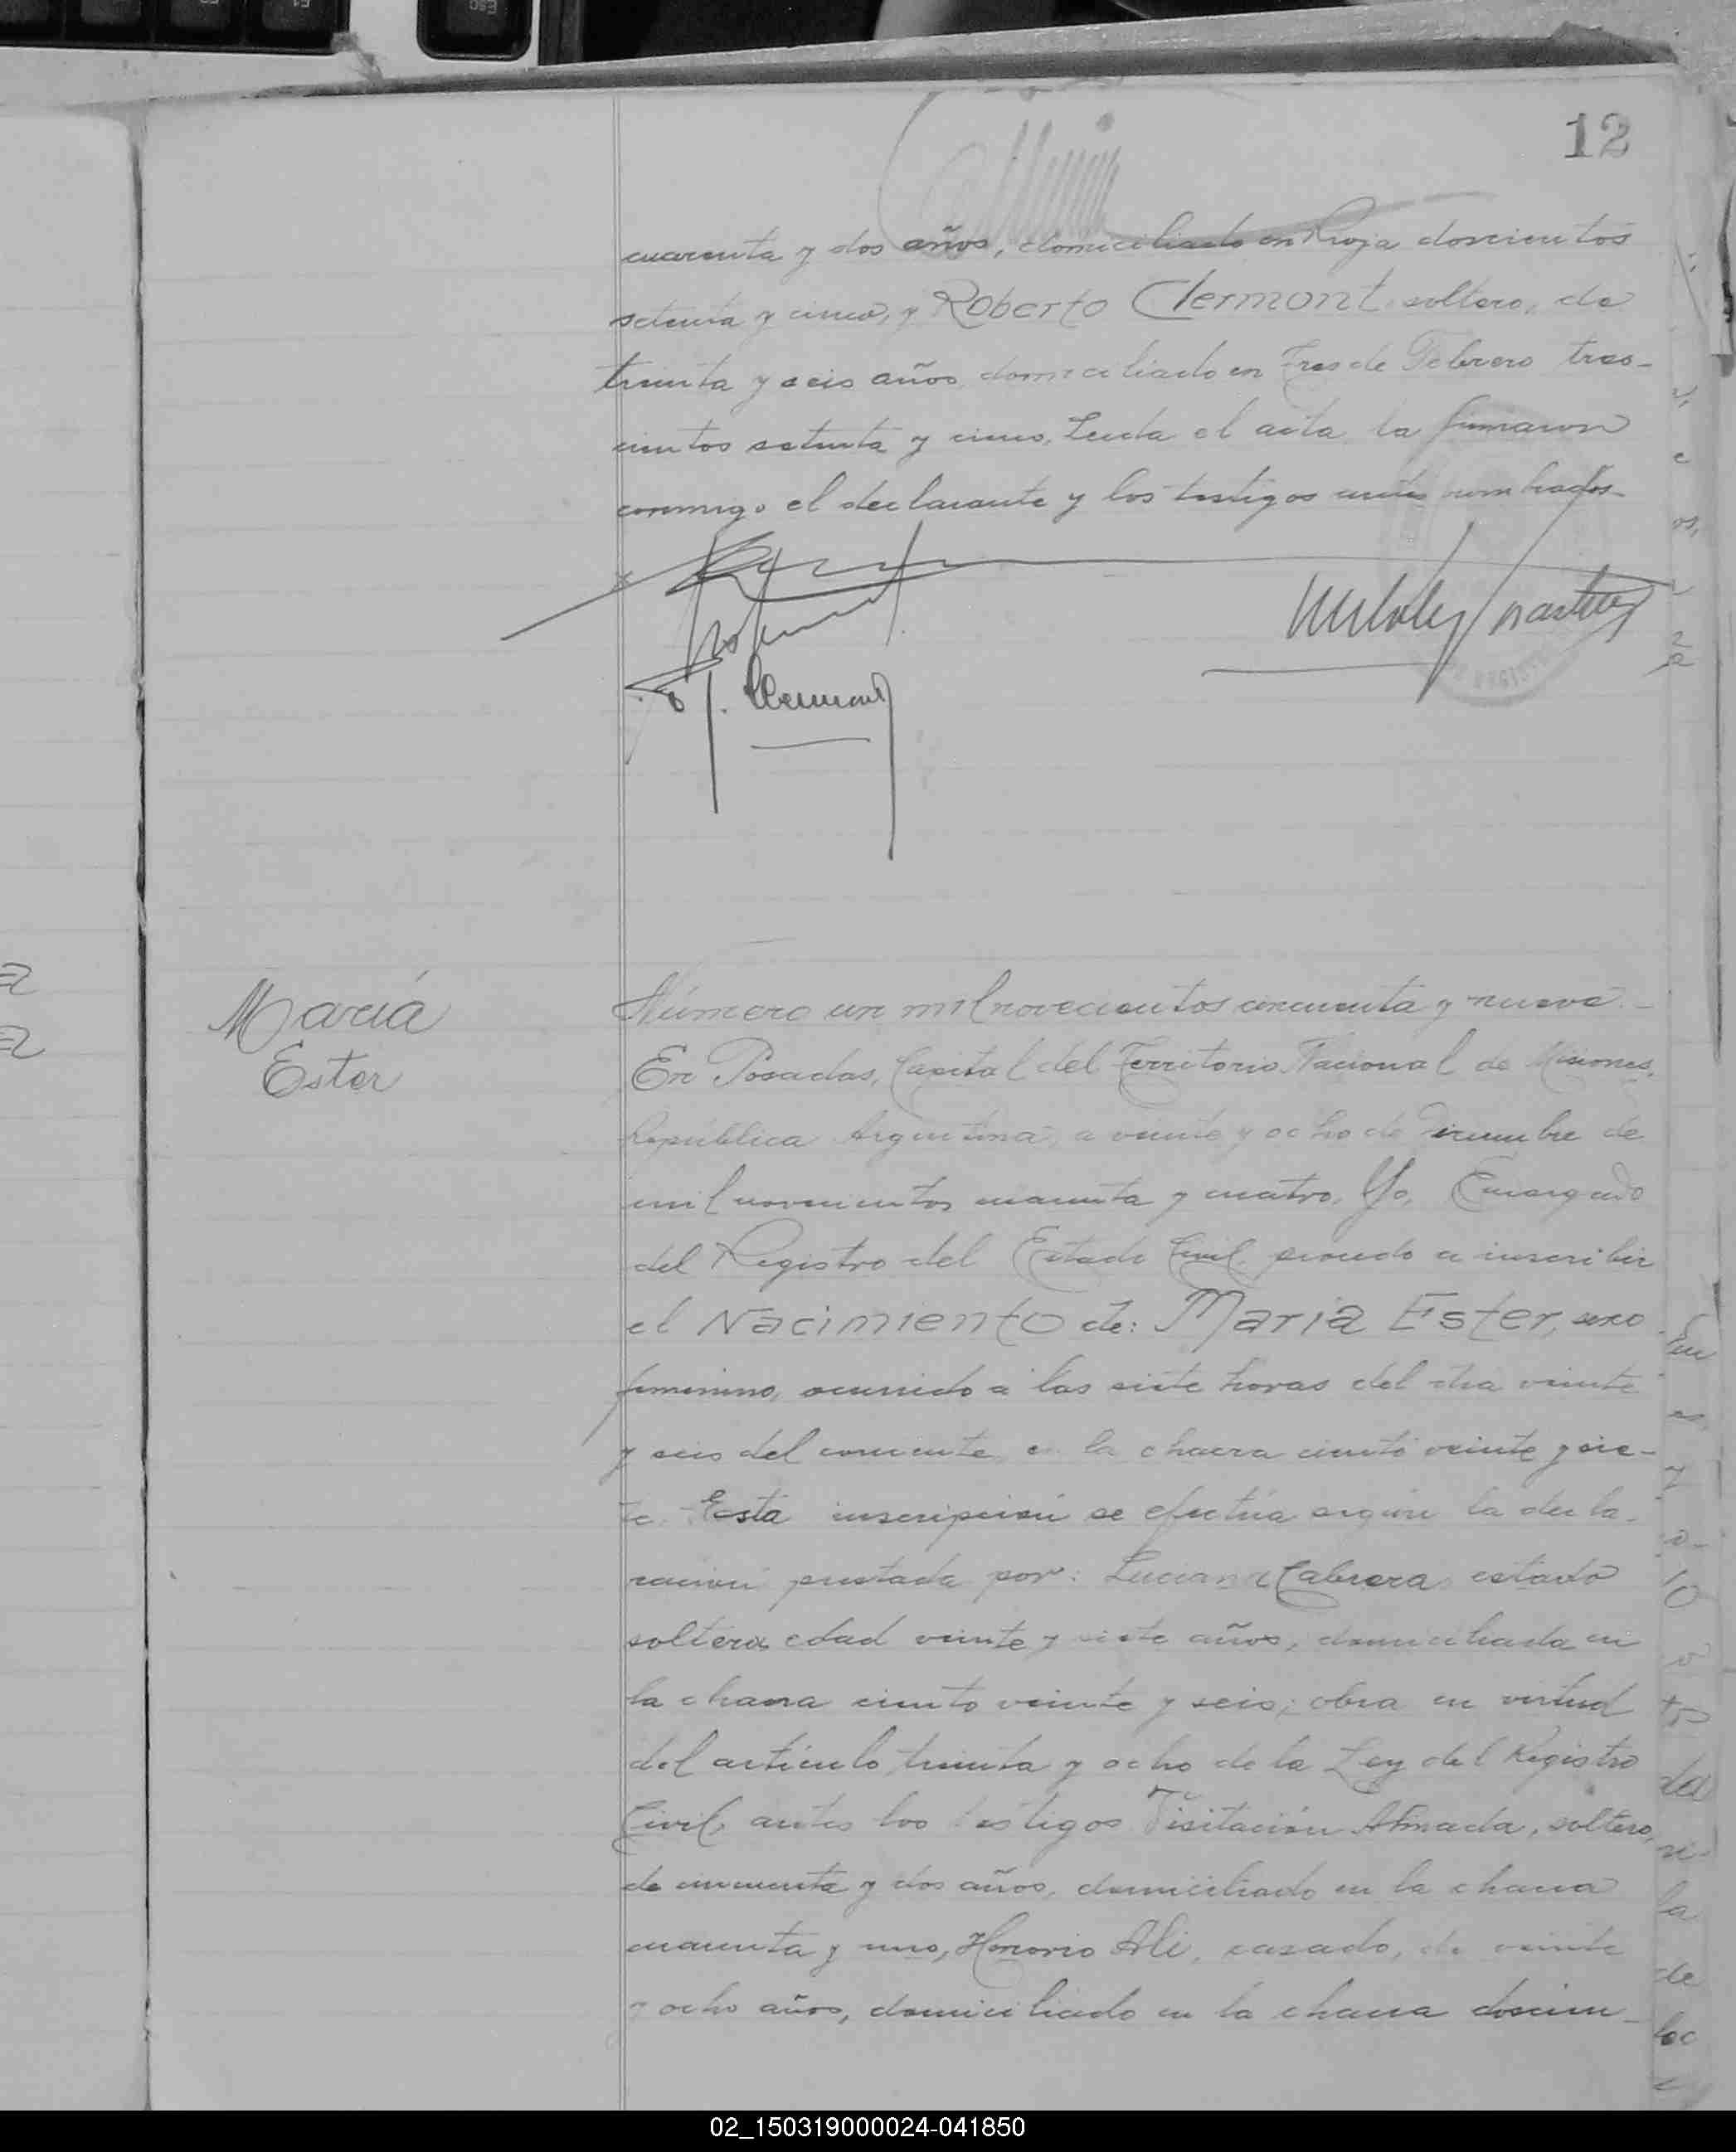 12
cuarenta y dos años, domiciliado en Rioja doscientos
setenta y cinco, y Roberto Clermont soltero, de
treinta y seis años domiciliado en Tres de Febrero tres-
cientos setenta y cinco, Leida el acta la firmaron
conmigo el declarante y los testigos antes nombrados.
María
Ester
Número un mil novecientos cincuenta y nueve.-
En Posadas, Capital del Territorio Nacional de Misiones,
República Argentina, a veinte y ocho de Diciembre de
mil novecientos cuarenta y cuatro, Yo, Encargado
del Registro del Estado Civil procedo a inscribir
el Nacimiento de: María Ester, sexo
femenino, ocurrido a las siete horas del dia veinte
y seis del corriente en la chacra ciento veinte y sie-
te. Esta inscripción se efectúa según la decla-
ración prestada por: Luciana Cabrera estado
soltera edad veinte y siete años, domiciliada en
la chacra ciento veinte y seis; obra en virtud
del artículo treinta y ocho de la Ley del Registro
Civil, antes los testigos Visitación Almada, soltero,
de cincuenta y dos años, domiciliado en la chacra
cuarenta y uno, Honorio Ali, casado, de veinte
y ocho años, domiciliado en la chacra doscien-
02_150319000024-041850